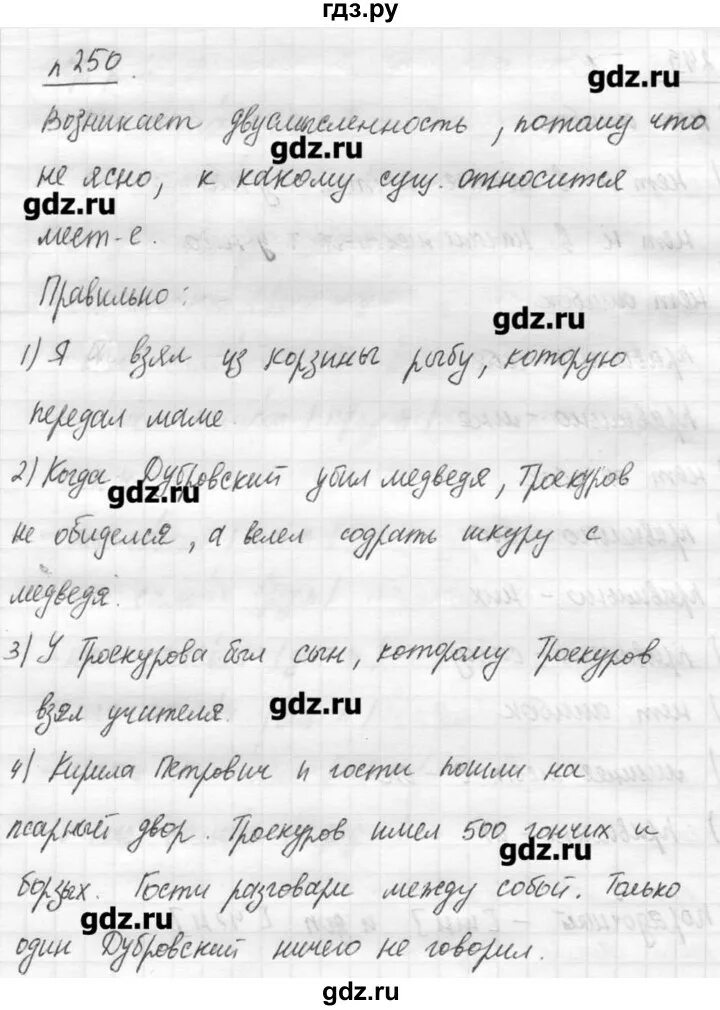 гдз.ру
п 250.
gdz.ru
Возникает двусмысленность, потому что
gdz.ru
не ясно, к какому сущ. относится
gdz.ru
мест-е.
Правильно:
gdz.ru
1) Я взял из корзины рыбу, которую
передал маме.
2) Когда Дубровский убил медведя, Троекуров
gdz.ru
не обиделся, а велел содрать шкуру с
медведя.
3) У Троекурова был сын, которому Троекуров
взял учителя.
gdz.ru
4) Кирила Петрович и гости пошли на
псарный двор. Троекуров имел 500 гончих и
gdz.ru
борзых. Гости разговари между собой. Только
gdz.ru
один Дубровский ничего не говорил.
gdz.ru